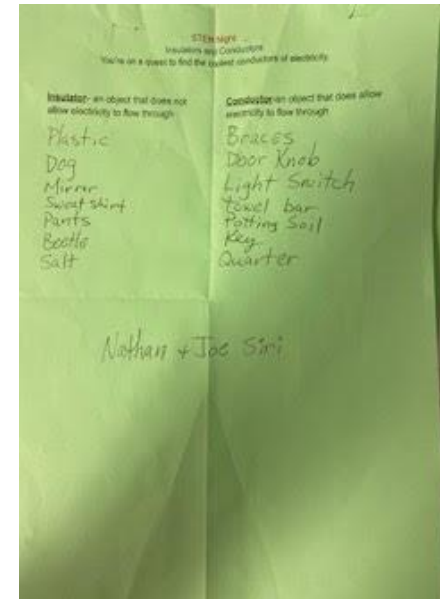 STEM Night
Insulators and Conductors
You're on a quest to find the coolest conductors of electricity.
Insulator- an object that does not
allow electricity to flow through
Plastic
Dog
Mirror
Sweatshirt
Pants
Beetle
Salt
Conductor-an object that does allow
electricity to flow through
Braces
Door Knob
Light Switch
towel bar
Potting Soil
Key
Quarter
Nathan + Joe Siri